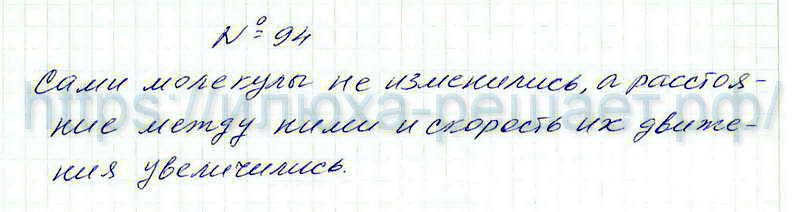 № 94
Сами молекулы не изменились, а расстоя-
ние между ними и скорость их движе-
ния увеличились.
https://илюха-решает.рф/